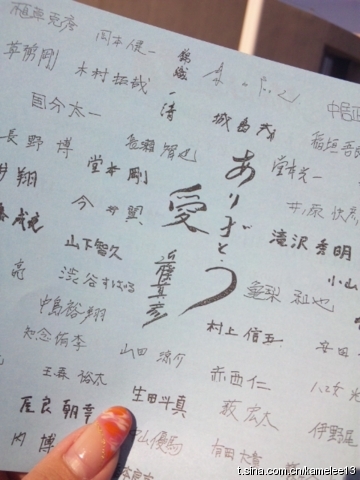 植草克彦
岡本健一
錦織一清
草彅剛
木村拓哉
城島茂
中居正
国分太一
稲垣吾郎
長野博
長瀬智也
ありがとう
堂本剛
堂本光一
井翔
今井翼
愛
井ノ原快彦
山下智久
近藤真彦
滝沢秀明
亮
渋谷すばる
亀梨和也
小山
中島裕翔
村上信五
安田
知念侑李
山田涼介
赤西仁
八乙女光
玉森裕太
屋良朝幸
生田斗真
薮宏太
伊野尾
内博
中山優馬
有岡大貴
t.sina.com.cn/kamelee13